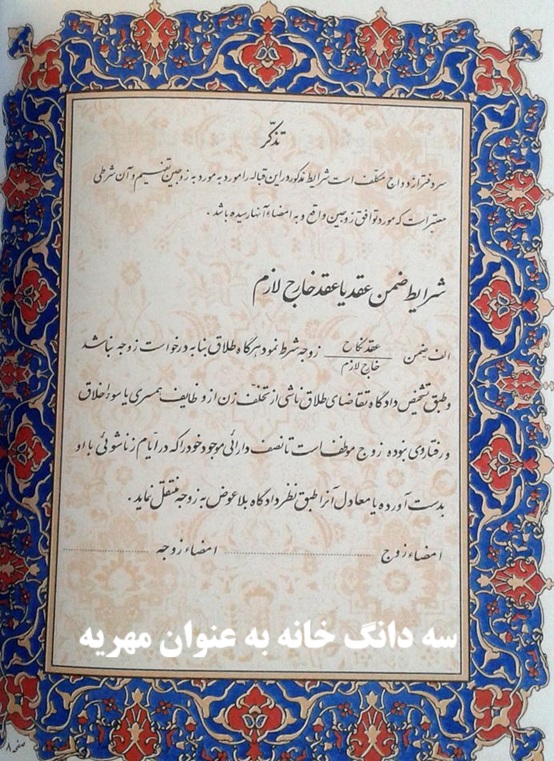 تذکّر
سردفتر ازدواج مکلّف است شرایط مذکور در این قباله را مورد به مورد به زوجین تفهیم و آن شرطی
معتبر است که مورد توافق زوجین واقع و به امضاء آنها رسیده باشد.
شرایط ضمن عقد یا عقد خارج لازم
الف ضمن عقد نکاح / خارج لازم زوجه شرط نمود هرگاه طلاق بنا به درخواست زوجه نباشد
و طبق تشخیص دادگاه تقاضای طلاق ناشی از تخلّف زن از وظایف همسری یا سوء اخلاق
و رفتار وی نبوده زوج موظف است تا نصف دارائی موجود خود را که در ایّام زناشوئی با او
بدست آورده یا معادل آنرا طبق نظر دادگاه بلاعوض به زوجه منتقل نماید.
امضاء زوج ........ امضاء زوجه ........
سه دانگ خانه به عنوان مهریه
صفحه ۸